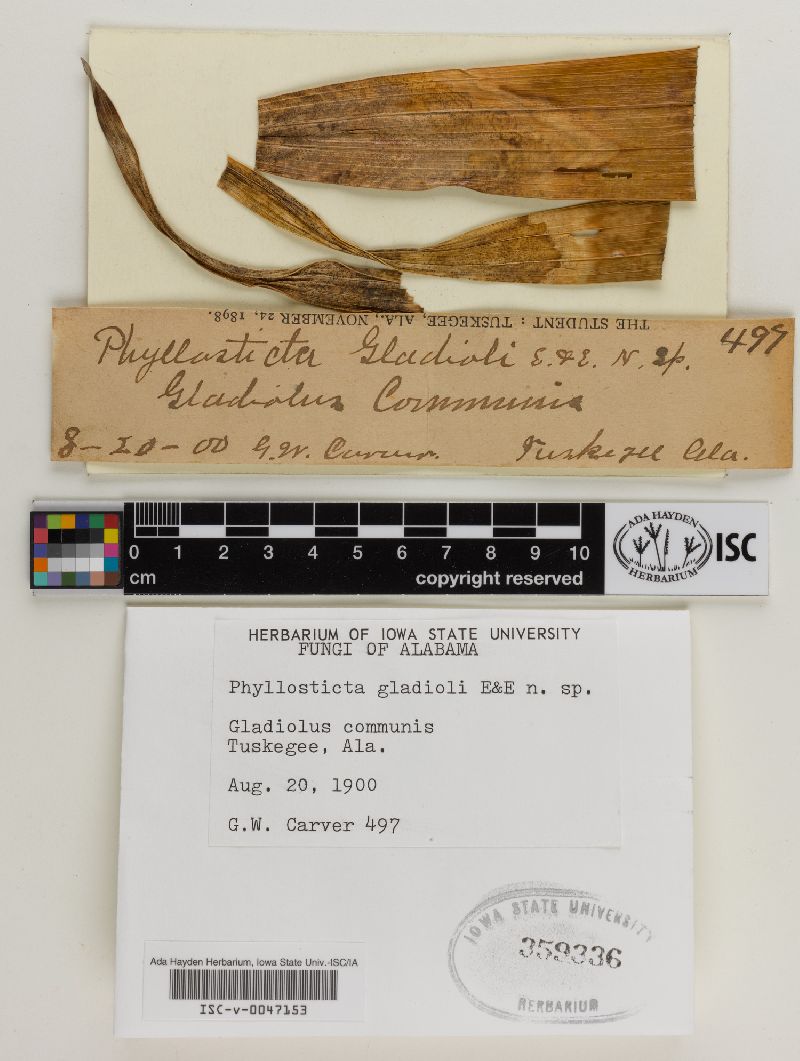 THE STUDENT : TUSKEGEE, ALA., NOVEMBER 24, 1898.
Phyllosticta Gladioli E. & E. N. sp. 497
Gladiolus Communis
8-20-00 G.W. Carver. Tuskegee Ala.
0 1 2 3 4 5 6 7 8 9 10
cm copyright reserved
ADA HAYDEN
HERBARIUM
ISC
HERBARIUM OF IOWA STATE UNIVERSITY
FUNGI OF ALABAMA
Phyllosticta gladioli E&E n. sp.
Gladiolus communis
Tuskegee, Ala.
Aug. 20, 1900
G.W. Carver 497
IOWA STATE UNIVERSITY
359336
HERBARIUM
Ada Hayden Herbarium, Iowa State Univ.-ISC/IA
ISC-v-0047153